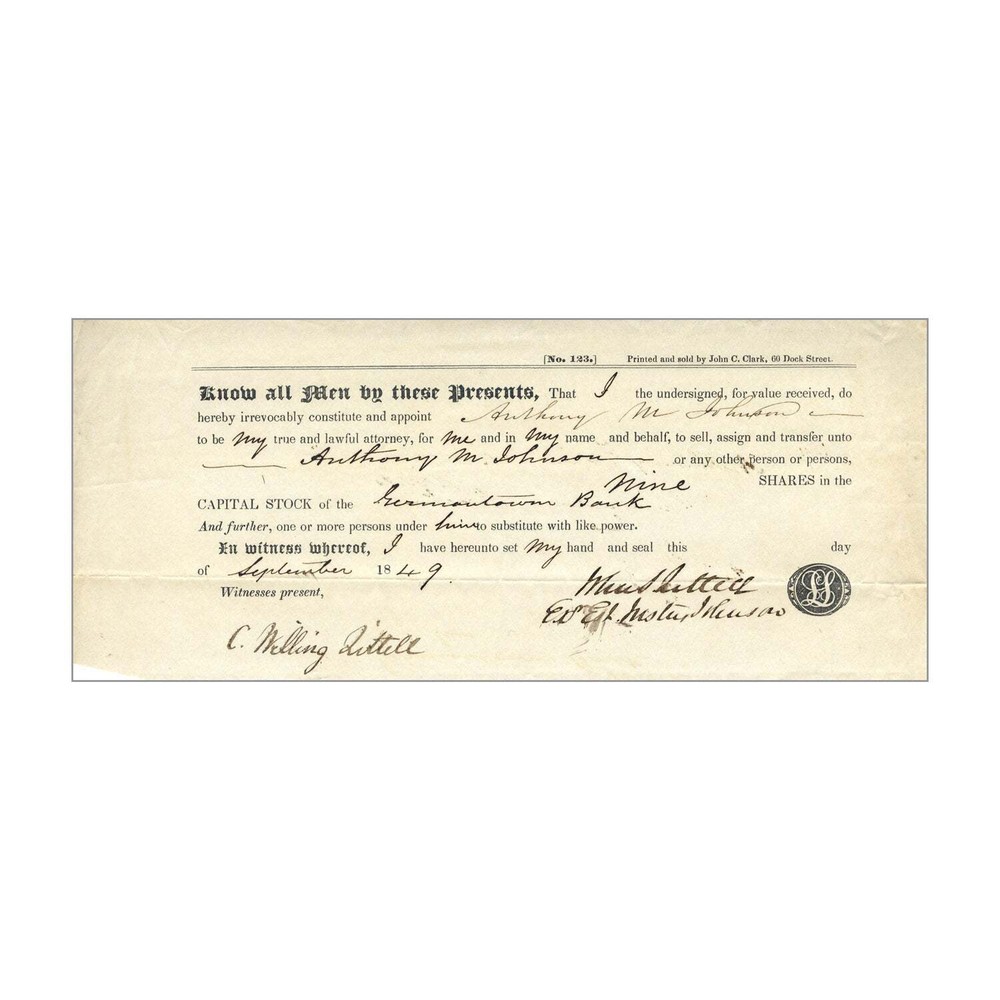 [No. 123.] Printed and sold by John C. Clark, 60 Dock Street.
Know all Men by these Presents, That I the undersigned, for value received, do
hereby irrevocably constitute and appoint Anthony M Johnson
to be my true and lawful attorney, for me and in my name and behalf, to sell, assign and transfer unto
Anthony M. Johnson or any other person or persons,
Nine SHARES in the
CAPITAL STOCK of the Germantown Bank
And further, one or more persons under him to substitute with like power.
In witness whereof, I have hereunto set my hand and seal this day
of September 1849.
Witnesses present,
Littell
Johnson
LS
C. Willing Littell